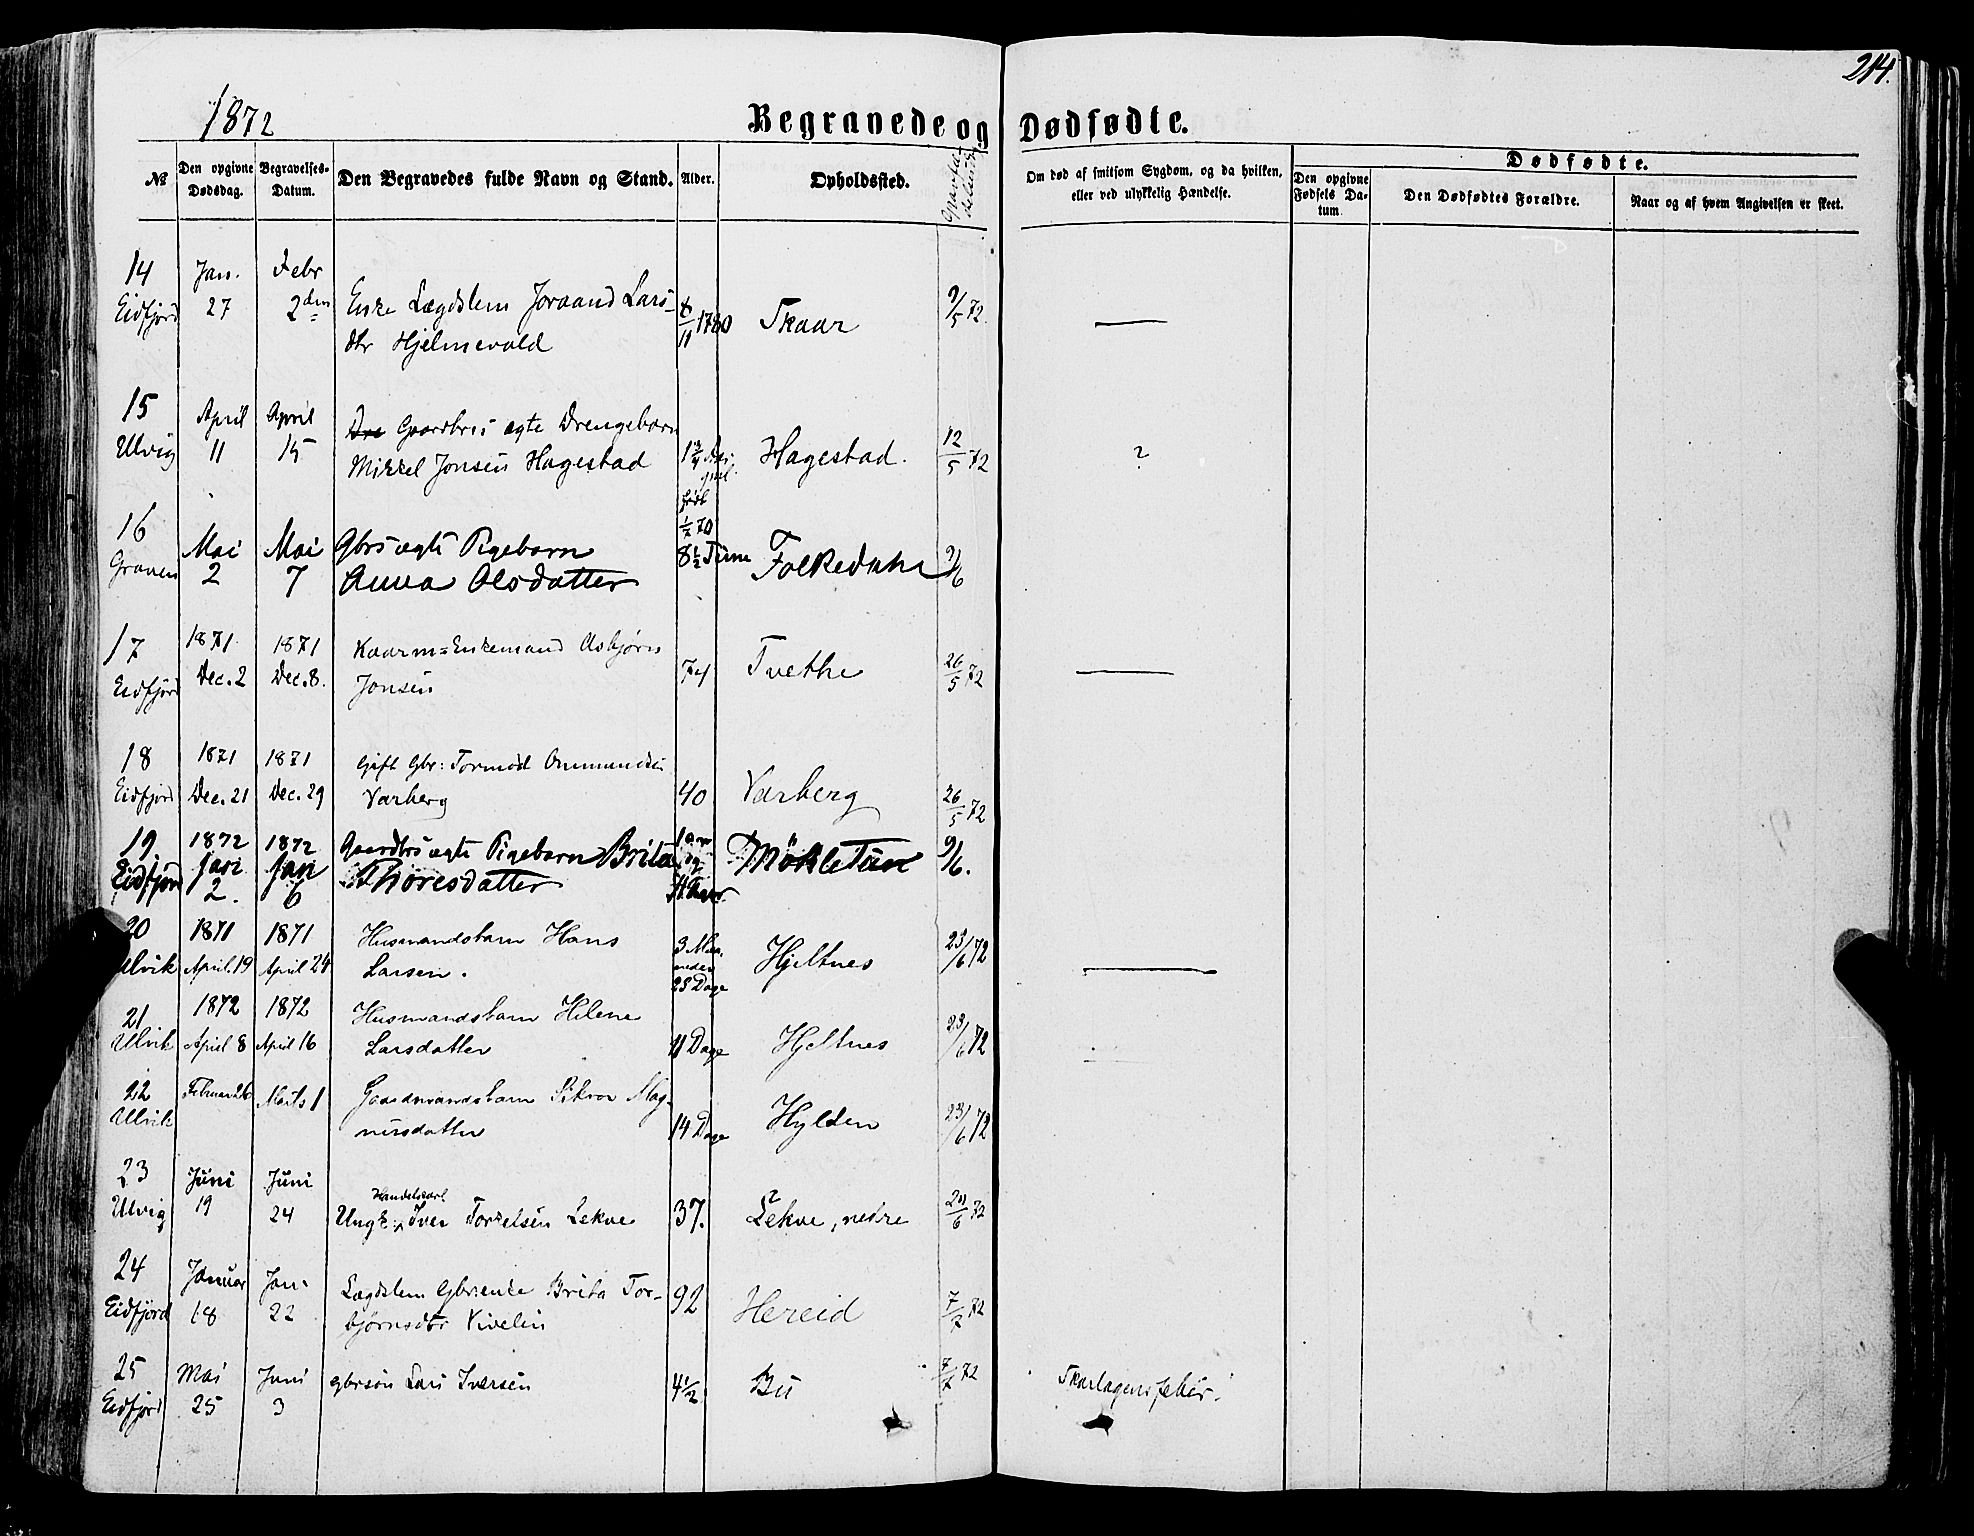 214.
1872
Begravede og Dødfødte.
№
Den opgivne Dødsdag.
Begravelses-Datum.
Den Begravedes fulde Navn og Stand.
Alder.
Opholdssted.
Om død af smitsom Sygdom, og da hvilken, eller ved ulykkelig Hændelse.
Dødfødte.
Den opgivne Fødsels Datum.
Den Dødfødtes Forældre.
Naar og af hvem Angivelsen er skeet.
14 Jan. Febr
Eidfjord 27 2den Enke Lægdslem Joraand Lars- 6/11 1780 Skaar 9/5 72. —
dtr Hjelmevold
15 April April Gaardbrs ægte Drengebarn
Ulvig 11 15 Mikkel Jonsen Hagestad 1 3/4 Hagestad. 12/5 72 ?
født 1/7 70
16 Mai Mai Gbrs ægte Pigebarn 8 1/2 Time
Graven 2 7 Anna Olsdatter Folkedahl 9/6
17 1871 1871 Kaarm= Enkemand Asbjørn
Eidfjord Dec. 2 Dec. 8. Jonsen 74 Tvethe 26/5 72 —
18 1871 1871 Gift Gbr: Tormod Ommundsen
Eidfjord Dec. 21 Dec. 29 Varberg 40 Varberg 26/5 72
19 1872 1872 Gaardbrs ægte Pigebarn Brita
Eidfjord Jan 2. Jan 6 Thoresdatter Mökletun 9/6.
20 1871 1871 Husmandsbarn Hans 3 Maaneder
Ulvik April 19 April 24 Larsen. 28 Dage Hjeltnes 23/6 72 —
21 1872 1872 Husmandsbarn Helene
Ulvik April 8 April 16 Larsdatter 11 Dage Hjeltnes 23/6 72
22 Februar 26 Marts 1 Gaardmandsbarn Sikvor Mag-
Ulvik nusdatter 14 Dage Hylden 23/6 72
23 Juni Juni Handelskarl
Ulvig 19 24 Ungk: Iver Torkelsen Lekve 37. Lekve, nedre 24/6 72
24 Januar Jan- Lægdslem Gbrenke Brita Tor-
Eidfjord 18 22 bjørnsdtr Vivelin 92 Hereid 7/7 72
25 Mai Juni gbrsøn Lars Iversen 4 1/2 Bu 7/7 72 Skarlagensfeber.
Eidfjord 25 3